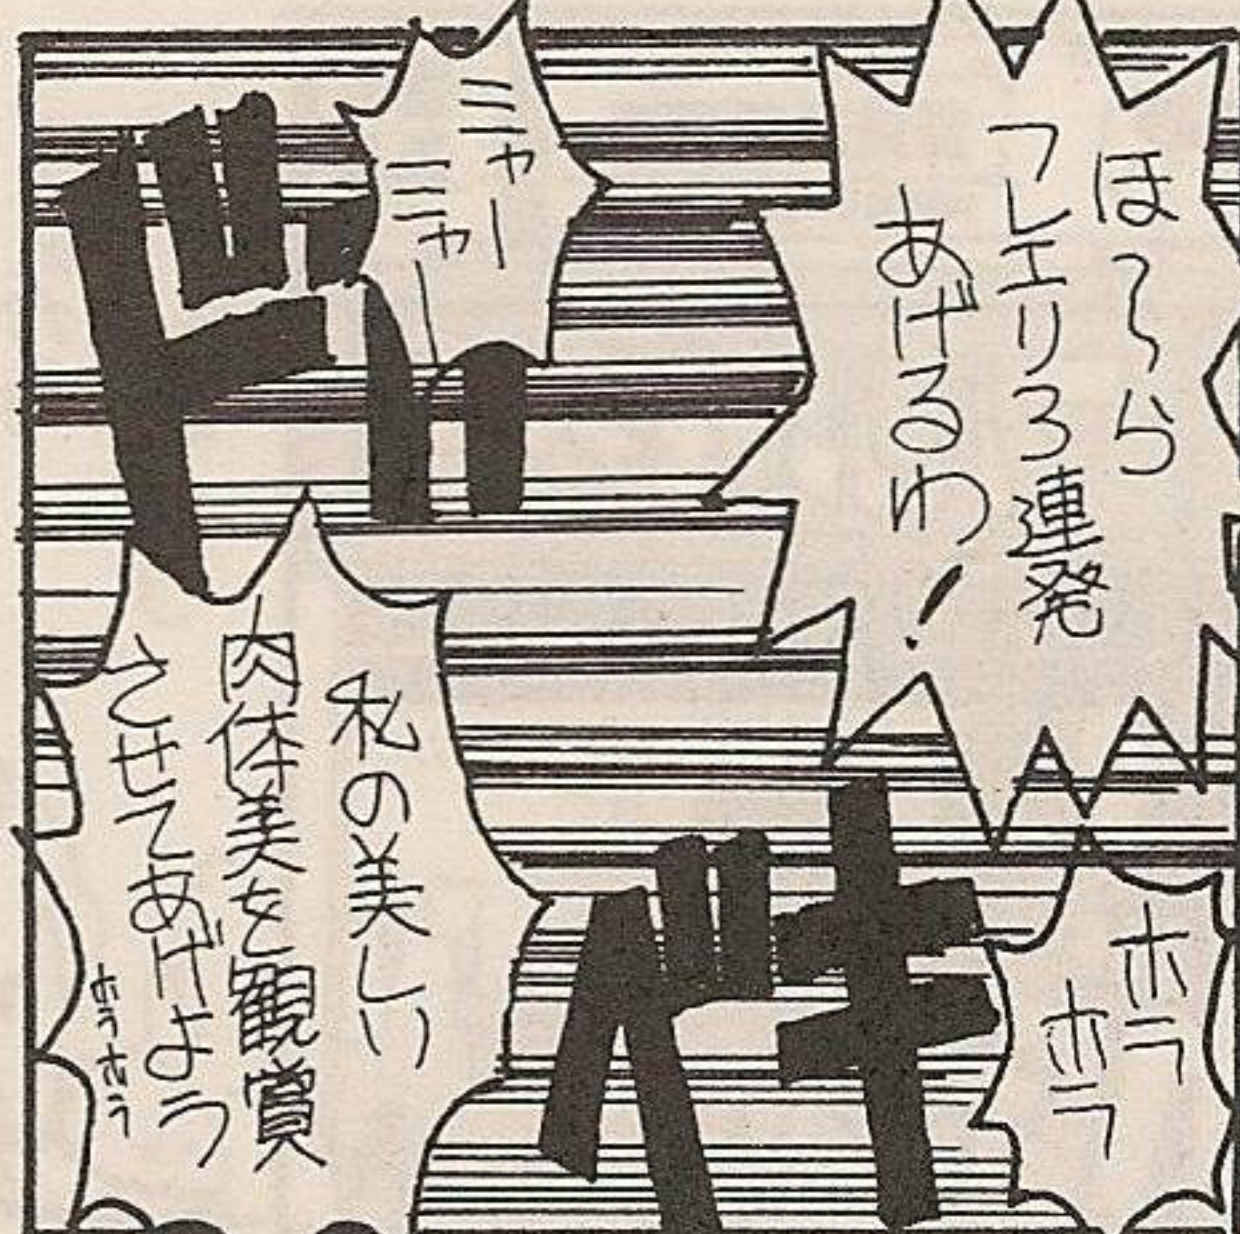 ほ〜ら
フレエリ3連発
あげるわ!
ミャー
ミャー
ドカ
ホラ
ホラ
バキ
私の美しい
肉体美を観賞
させてあげよう
ホラホラ